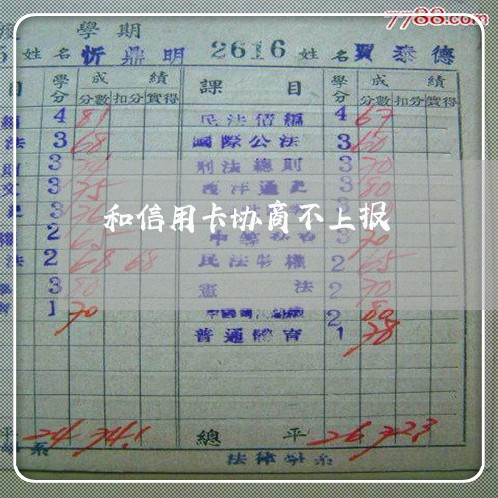 7788.com
學期
姓名 忻鼎明 2616 姓名 賈泰德
目 學分 成績 課目 學分 成績
分數 扣分 實得 分數 扣分 實得
4 81 民法債編 4 67
法 3 68 國際公法 3 60
3 刑法總則 3 70
3 75 西洋通史 3 80
3 3
和信用卡协商不上报
2 3 70
法 2 68 68 民法物權 2 65
3 80 憲法 2 70
1 70 2 80
普通體育 1 78
平 24 74.1 總平 26 72.3
系 法律學系